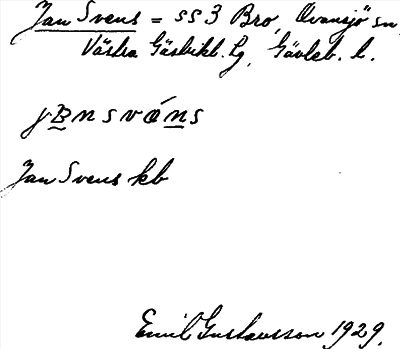 Jan Svens = ss 3 Bro, Ovansjö sn,
Västra Gästrikl. Lg, Gävleb. l.
jɒnsvǽns
Jan Svens kb
Emil Gustavsson 1929.